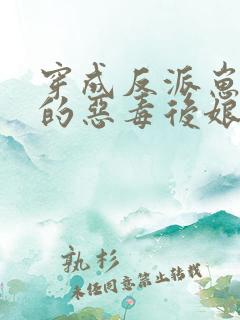 穿成反派崽
的惡毒後娘
孰杉
未经同意禁止转载